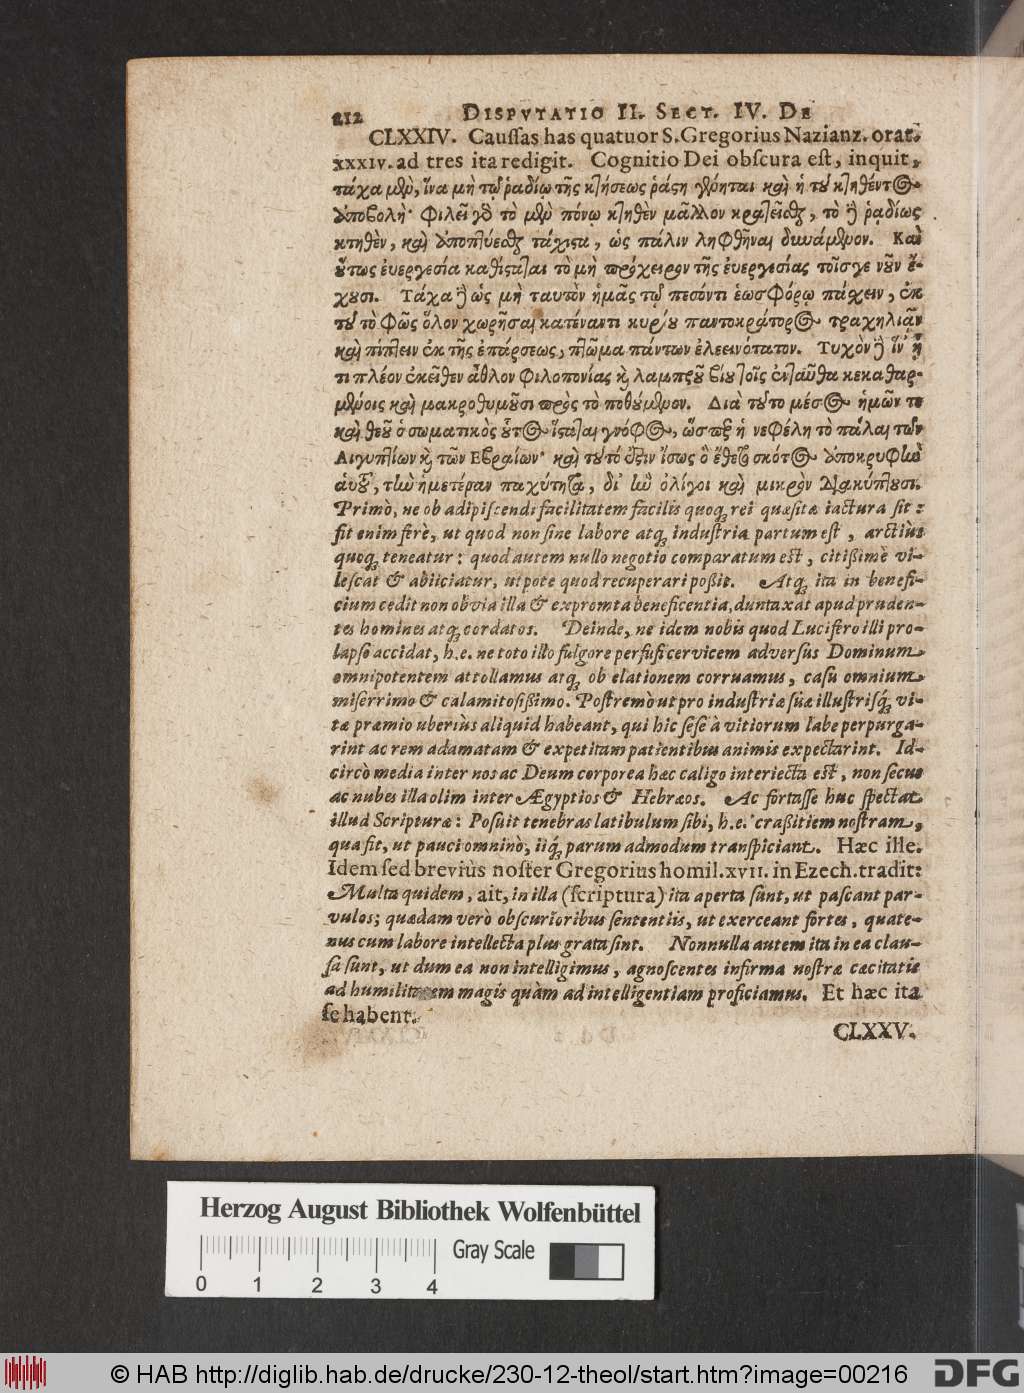 212 DISPVTATIO II. SECT. IV. DE
CLXXIV. Caussas has quatuor S. Gregorius Nazianz. orat.
XXXIV. ad tres ita redigit. Cognitio Dei obscura est, inquit,
τάχα μὲν, ἵνα μὴ τῷ ῥαδίῳ τῆς κτήσεως ῥᾴστη γένηται καὶ ἡ τοῦ κτηθέντος
ἀποβολή· Φιλεῖ γὰρ τὸ μὲν πόνῳ κτηθὲν μᾶλλον κρατεῖσθαι, τὸ δὲ ῥᾳδίως
κτηθὲν, καὶ ἀποπτύεσθαι τάχιστα, ὡς πάλιν ληφθῆναι δυνάμενον. Καὶ
οὕτως ἐυεργεσία καθίσταται τὸ μὴ πρόχειρον τῆς ἐυεργεσίας τοῖσγε νοῦν ἔ-
χουσι. Τάχα δὲ ὡς μὴ ταυτὸν ἡμᾶς τῷ πεσόντι ἑωσφόρῳ πάσχειν, ἐκ
τοῦ τὸ Φῶς ὅλον χωρῆσαι κατέναντι κυρίου παντοκράτορος τραχηλιᾷν
καὶ πίπτειν ἐκ τῆς ἐπάρσεως, πτῶμα πάντων ἐλεεινότατον. Τυχὸν δὲ ἵν᾽ ᾖ
τι πλέον ἐκεῖθεν ἆθλον Φιλοπονίας καὶ λαμπροῦ βίου τοῖς ἐνταῦθα κεκαθαρ-
μένοις καὶ μακροθυμοῦσι πρὸς τὸ ποθούμενον. Διὰ τοῦτο μέσος ἡμῶν τε
καὶ θεοῦ ὁ σωματικὸς οὗτος ἵσταται γνόφος, ὥσπερ ἡ νεφέλη τὸ πάλαι τῶν
Αἰγυπτίων καὶ τῶν Εβραίων· καὶ τοῦτό ἐστιν ἴσως ὃ ἔθετο σκότος ἀποκρυφὴν
ἁυτοῦ, τὴν ἡμετέραν παχύτητα, δι᾽ ἣν ὀλίγοι καὶ μικρὸν διακύπτουσι.
Primò, ne ob adipiscendi facilitatem facilis quoq; rei quæsitæ iactura sit:
fit enim ferè, ut quod non sine labore atq; industria partum est, arctiùs
quoq; teneatur: quod autem nullo negotio comparatum est, citißimè vi-
lescat & abiiciatur, utpote quod recuperari poßit. Atq; ita in benefi-
cium cedit non obvia illa & expromta beneficentia, duntaxat apud pruden-
tes homines atq; cordatos. Deinde, ne idem nobis quod Lucifero illi pro-
lapso accidat, h.e. ne toto illo fulgore perfusi cervicem adversùs Dominum
omnipotentem attollamus atq; ob elationem corruamus, casu omnium
miserrimo & calamitosißimo. Postremò ut pro industriæ suæ illustrisq; vi-
tæ præmio uberiùs aliquid habeant, qui hic sese à vitiorum labe perpurga-
rint ac rem adamatam & expetitam patientibus animis expectarint. Id-
circò media inter nos ac Deum corporea hæc caligo interiecta est, non secus
ac nubes illa olim inter Ægyptios & Hebræos. Ac fortasse huc spectat
illud Scripturæ: Posuit tenebras latibulum sibi, h.e. craßitiem nostram,
qua fit, ut pauci omninò, iiq; parum admodum transpiciant. Hæc ille.
Idem sed breviùs noster Gregorius homil. XVII. in Ezech. tradit:
Multa quidem, ait, in illa (scriptura) ita aperta sunt, ut pascant par-
vulos; quædam verò obscurioribus sententiis, ut exerceant fortes, quate-
nus cum labore intellecta plus grata sint. Nonnulla autem ita in ea clau-
sa sunt, ut dum ea non intelligimus, agnoscentes infirma nostræ cæcitatis
ad humilitatem magis quàm ad intelligentiam proficiamus. Et hæc ita
se habent.
CLXXV.
Herzog August Bibliothek Wolfenbüttel
Gray Scale
0 1 2 3 4
© HAB http://diglib.hab.de/drucke/230-12-theol/start.htm?image=00216
DFG